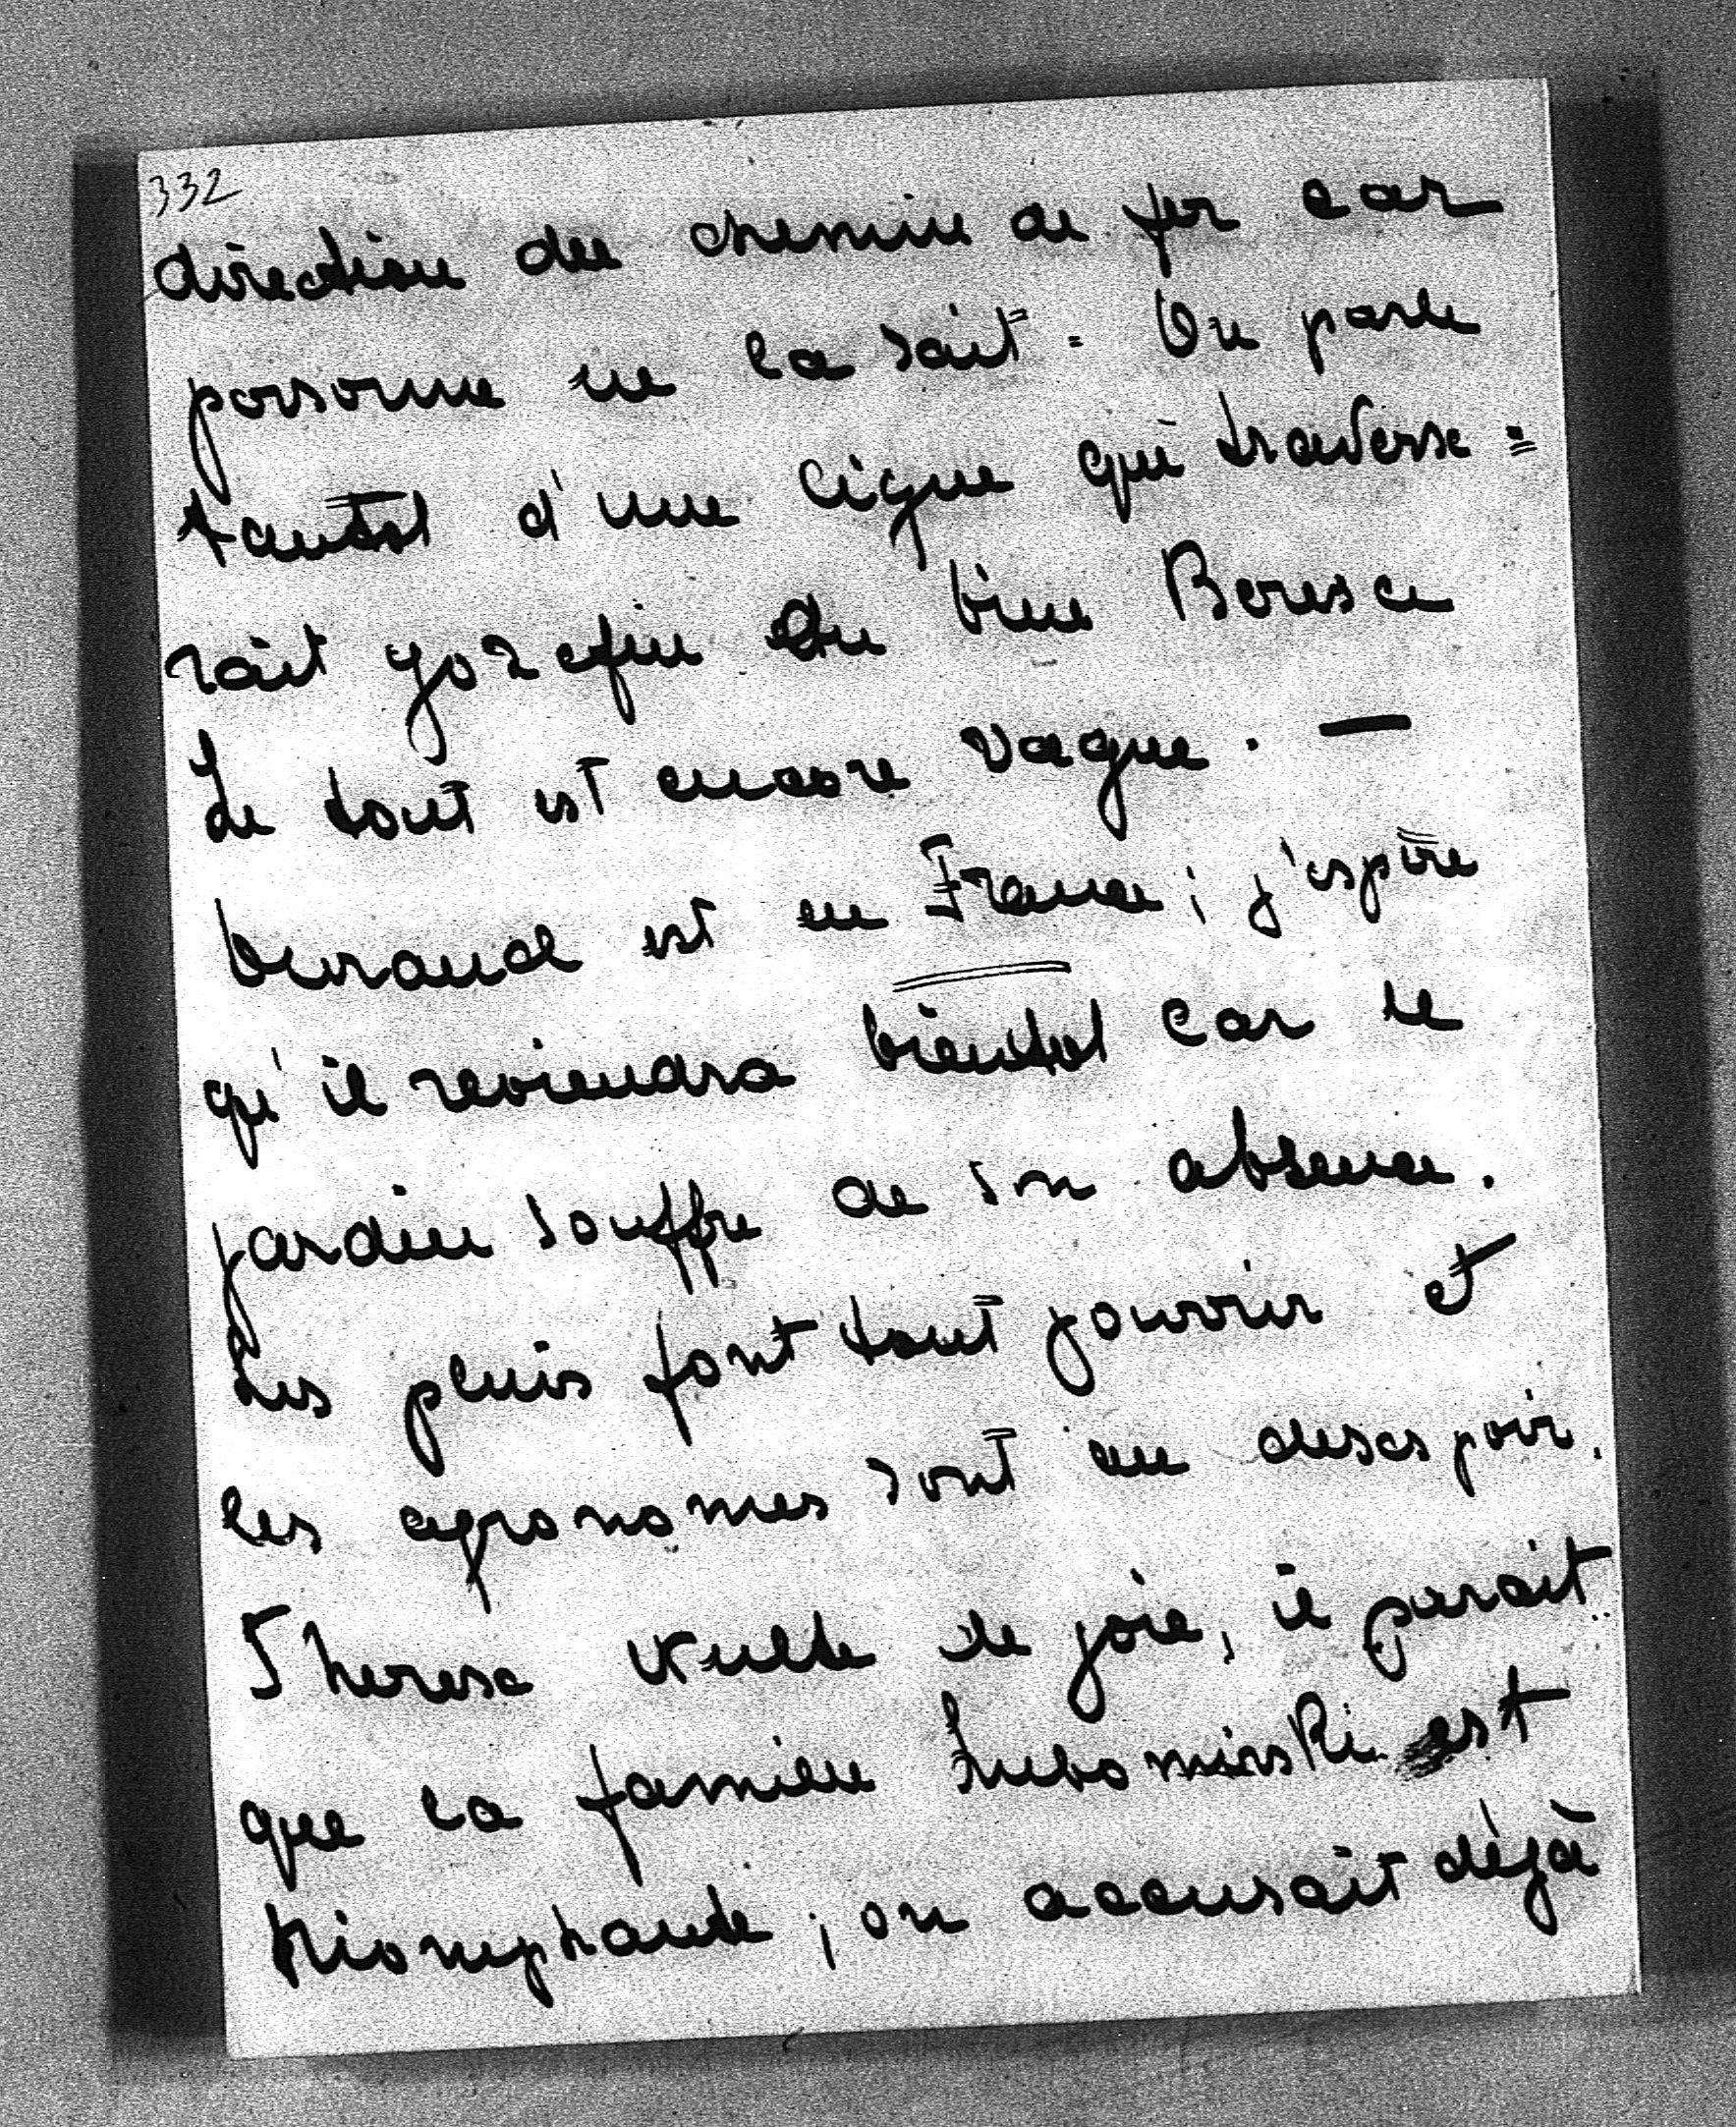 332
direction du chemin de fer car
personne ne la sait. On parle
tantôt d'une ligne qui traverse=
rait Jozefin ou bien Beresce
Le tout est encore vague. —
Durand est en France; j'espère
qu'il reviendra bientôt car le
jardin souffre de son absence.
Les pluis font tout pourrir et
les agronomes sont au desespoir.
Therese exulte de joie, il parait
que la famille Lubomirski est
triomphante; on accusait déjà